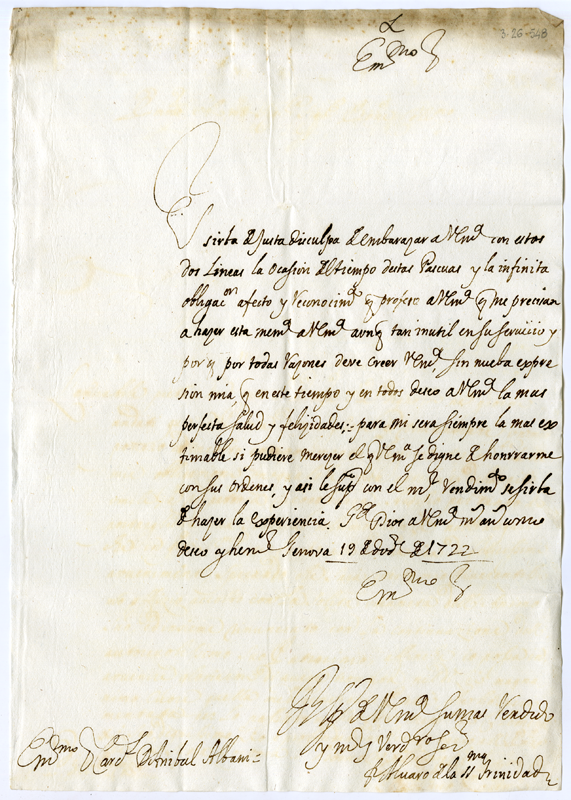 3-26-548
Em.mo S.r
Sirba de Justa disculpa de embarazar a V Em.a con estos
dos Lineas la Ocasion del tiempo destas Pascuas y la infinita
obligac.on afecto y Reconocim.to q profeso a V Em.a q me precisan
a hazer esta mem.a a V Em.a aunq tan inutil en su serviçio y
porq por todas Razones deve Creer V Em.a sin nueba expre
sion mia, q en este tiempo y en todos deseo a V Em.a la mas
perfecta salud y feliçidades; para mi sera siempre la mas ex
timable si pudiere mereçer el q V Em.a se digne de honrrarme
con sus ordenes, y asi le sup.co con el m.r Rendim.to se sirba
de hazer la experiencia. G.de Dios a V Em.a m.s an.s como
deseo y he m.r Genova 19 de Dez.e de 1722
Em.mo S.r
de V Em.a su mas Rendido
y Verd.ro Ser.r
Alvaro de la SS.ma Trinidad
Em.mo S.r Card.l D. Anibal Albani